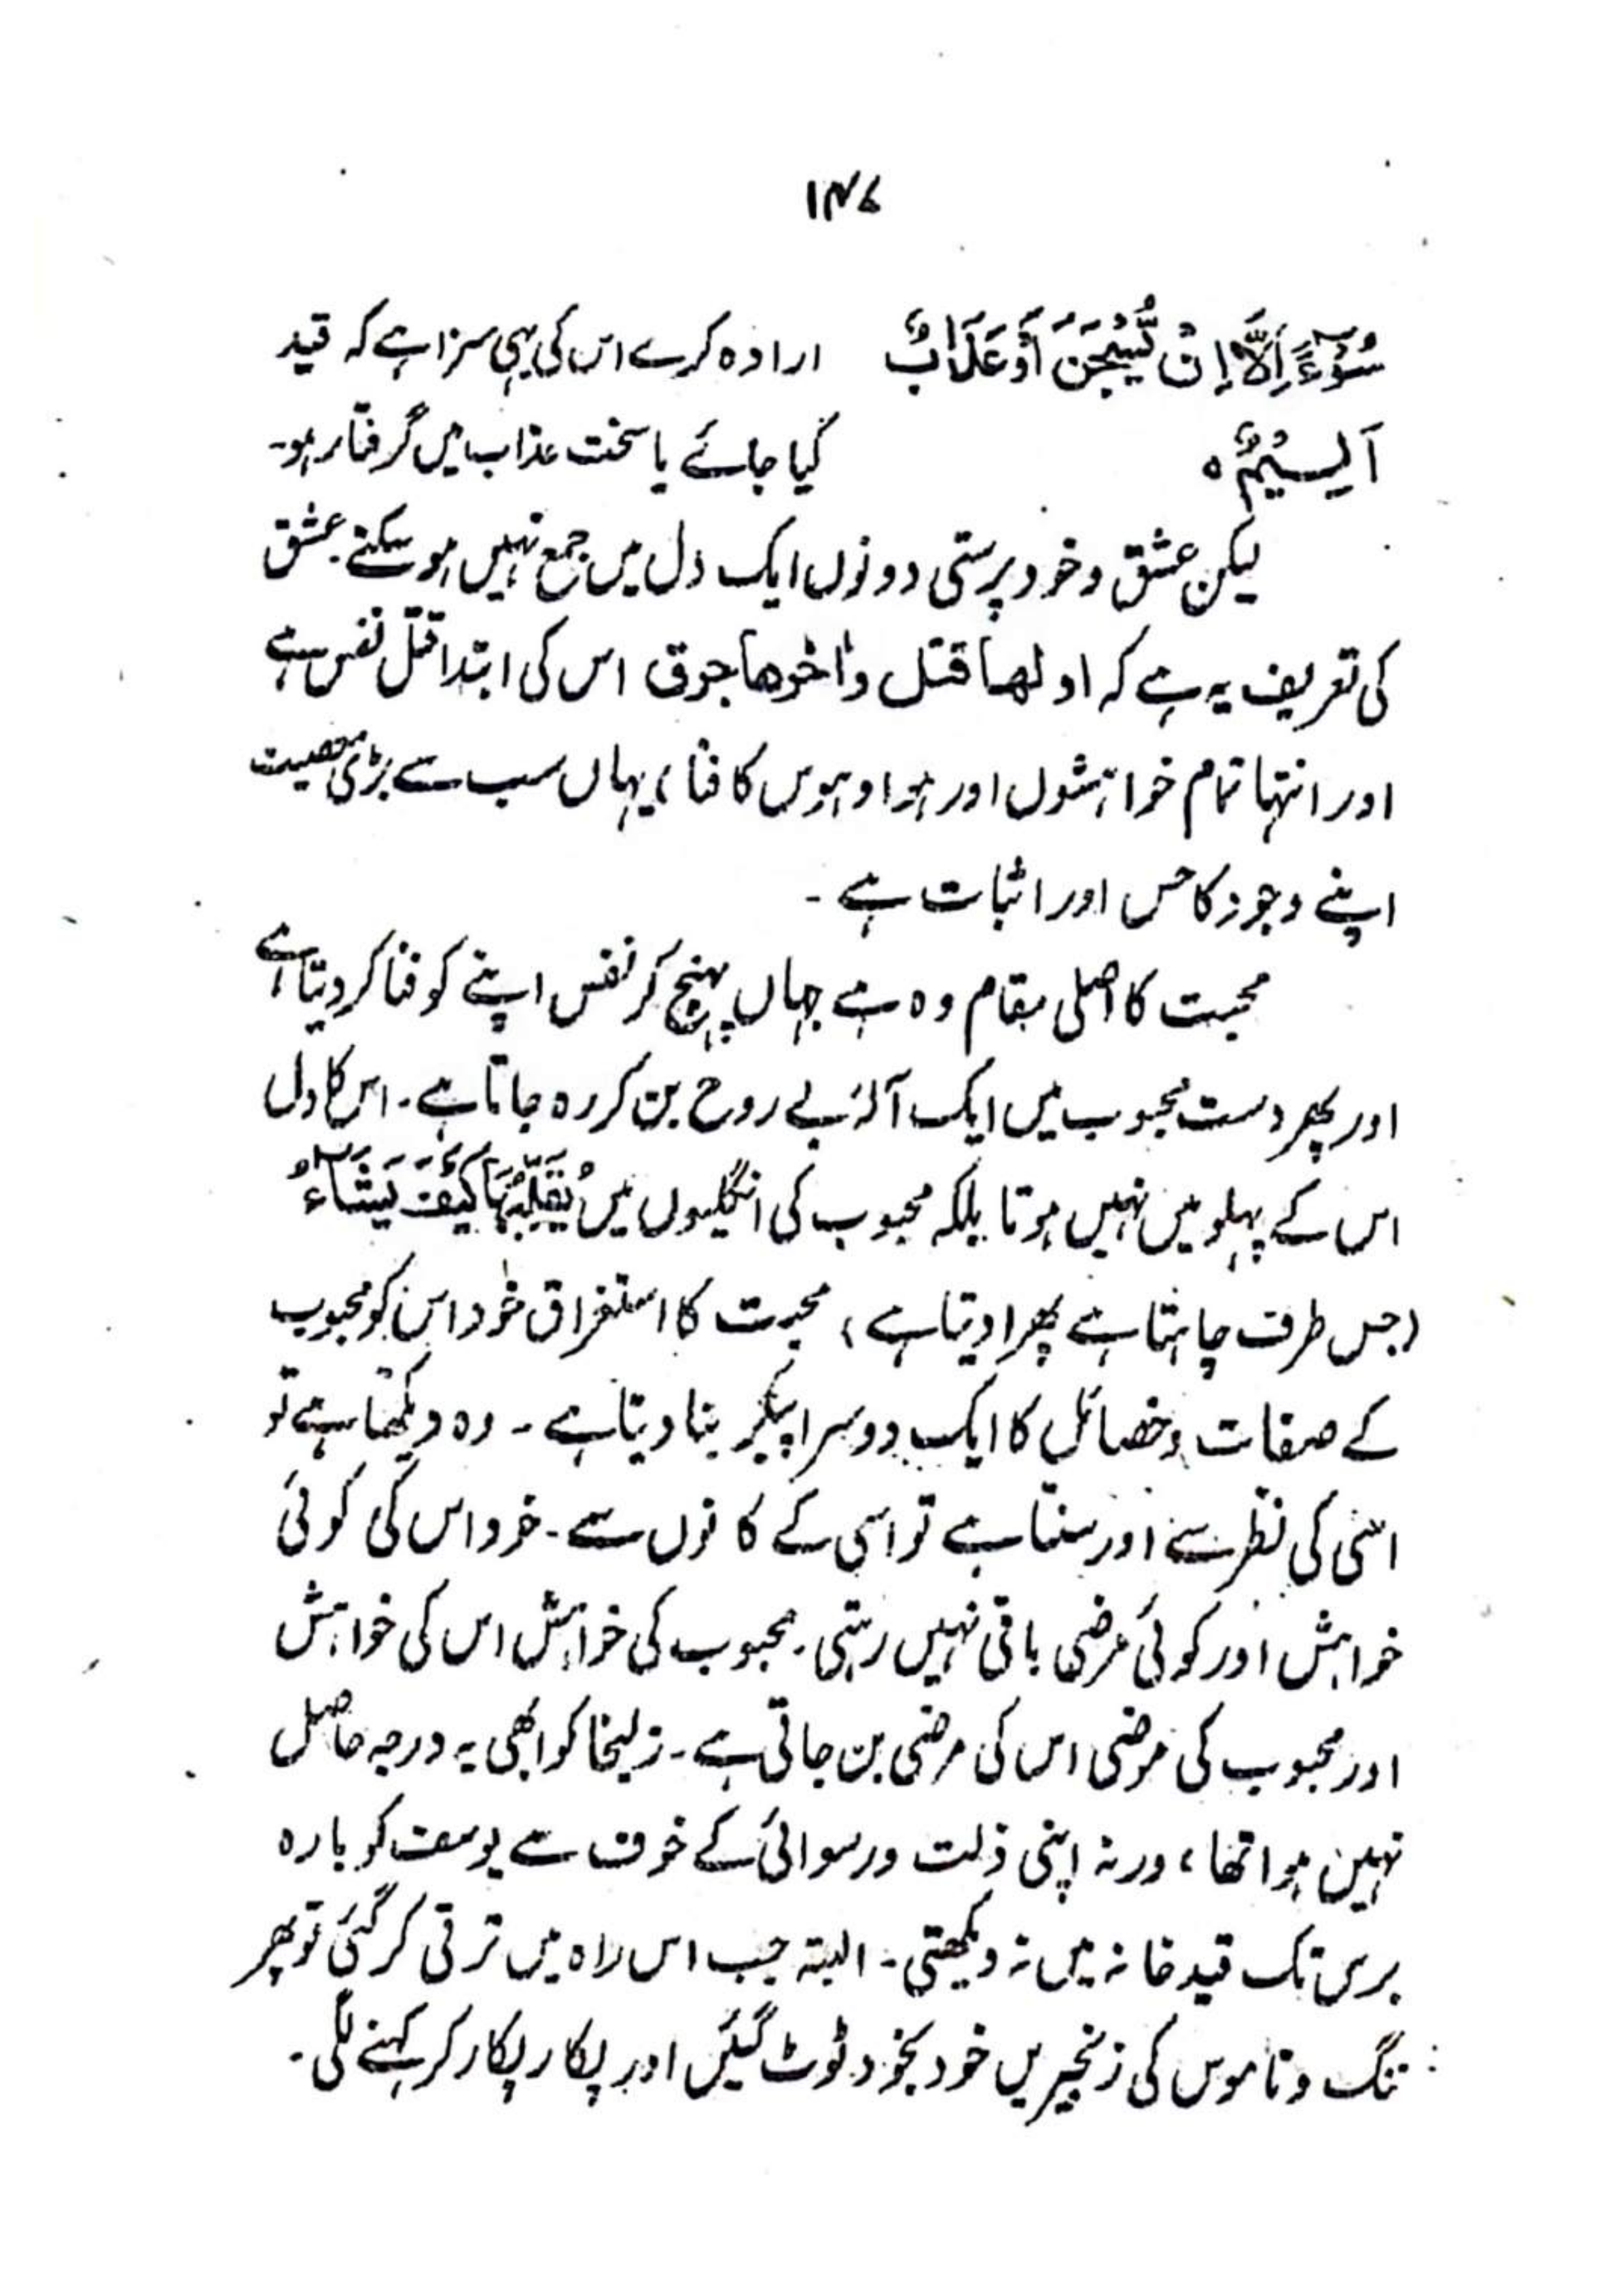 ۱۴۷
سُوْٓءًا اِلَّآ اِنْ یُّسْجَنَ اَوْ عَذَابٌ ارادہ کرے اس کی یہی سزا ہے کہ قید
اَلِیْمٌ ہ کیا جائے یا سخت عذاب میں گرفتار ہو۔
لیکن عشق و خود پرستی دونوں ایک دل میں جمع نہیں ہو سکتے۔ عشق
کی تعریف یہ ہے کہ اولھا قتل واٰخرھا حرق اس کی ابتدا قتل نفس ہے
اور انتہا تمام خواہشوں اور ہوا و ہوس کا فنا، یہاں سب سے بڑی معصیت
اپنے وجود کا حس اور اثبات ہے۔
محبت کا اصلی مقام وہ ہے جہاں پہنچ کر نفس اپنے کو فنا کر دیتا ہے
اور پھر دست محبوب میں ایک آلۂ بے روح بن کر رہ جاتا ہے۔ اس کا دل
اس کے پہلو میں نہیں ہوتا بلکہ محبوب کی انگلیوں میں یُقَلِّبُہَا کَیْفَ یَشَآءُ
(جس طرف چاہتا ہے پھرا دیتا ہے) محبت کا استغراق خود اس کو محبوب
کے صفات و خصائل کا ایک دوسرا پیکر بنا دیتا ہے۔ وہ دیکھتا ہے تو
اسی کی نظر سے اور سنتا ہے تو اسی کے کانوں سے۔ خود اس کی کوئی
خواہش اور کوئی مرضی باقی نہیں رہتی۔ محبوب کی خواہش اس کی خواہش
اور محبوب کی مرضی اس کی مرضی بن جاتی ہے۔ زلیخا کو ابھی یہ درجہ حاصل
نہیں ہوا تھا، ورنہ اپنی ذلت و رسوائی کے خوف سے یوسف کو بارہ
برس تک قید خانہ میں نہ دیکھتی۔ البتہ جب اس راہ میں ترقی کر گئی تو پھر
ننگ و ناموس کی زنجیریں خود بخود ٹوٹ گئیں اور پکار پکار کر کہنے لگی۔